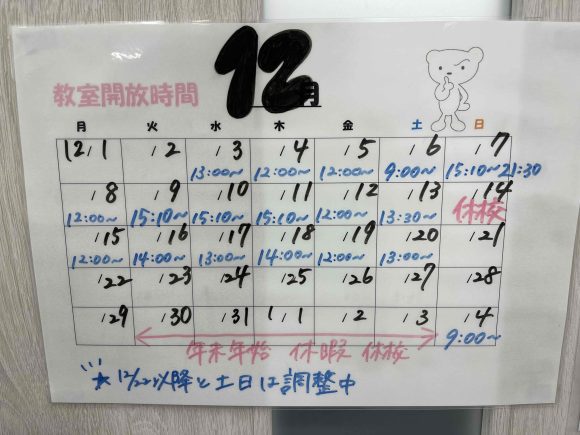 12月
教室開放時間
月 火 水 木 金 土 日
12/1 /2 /3 /4 /5 /6 /7
13:00~ 12:00~ 12:00~ 9:00~ 15:10~21:30
/8 /9 /10 /11 /12 /13 /14
12:00~ 15:10~ 15:10~ 15:10~ 12:00~ 13:30~ 休校
/15 /16 /17 /18 /19 /20 /21
12:00~ 14:00~ 13:00~ 14:00~ 12:00~ 13:00~
/22 /23 /24 /25 /26 /27 /28
/29 /30 /31 1/1 /2 /3 /4
年末年始 休暇 休校 9:00~
★12/22以降と土日は調整中